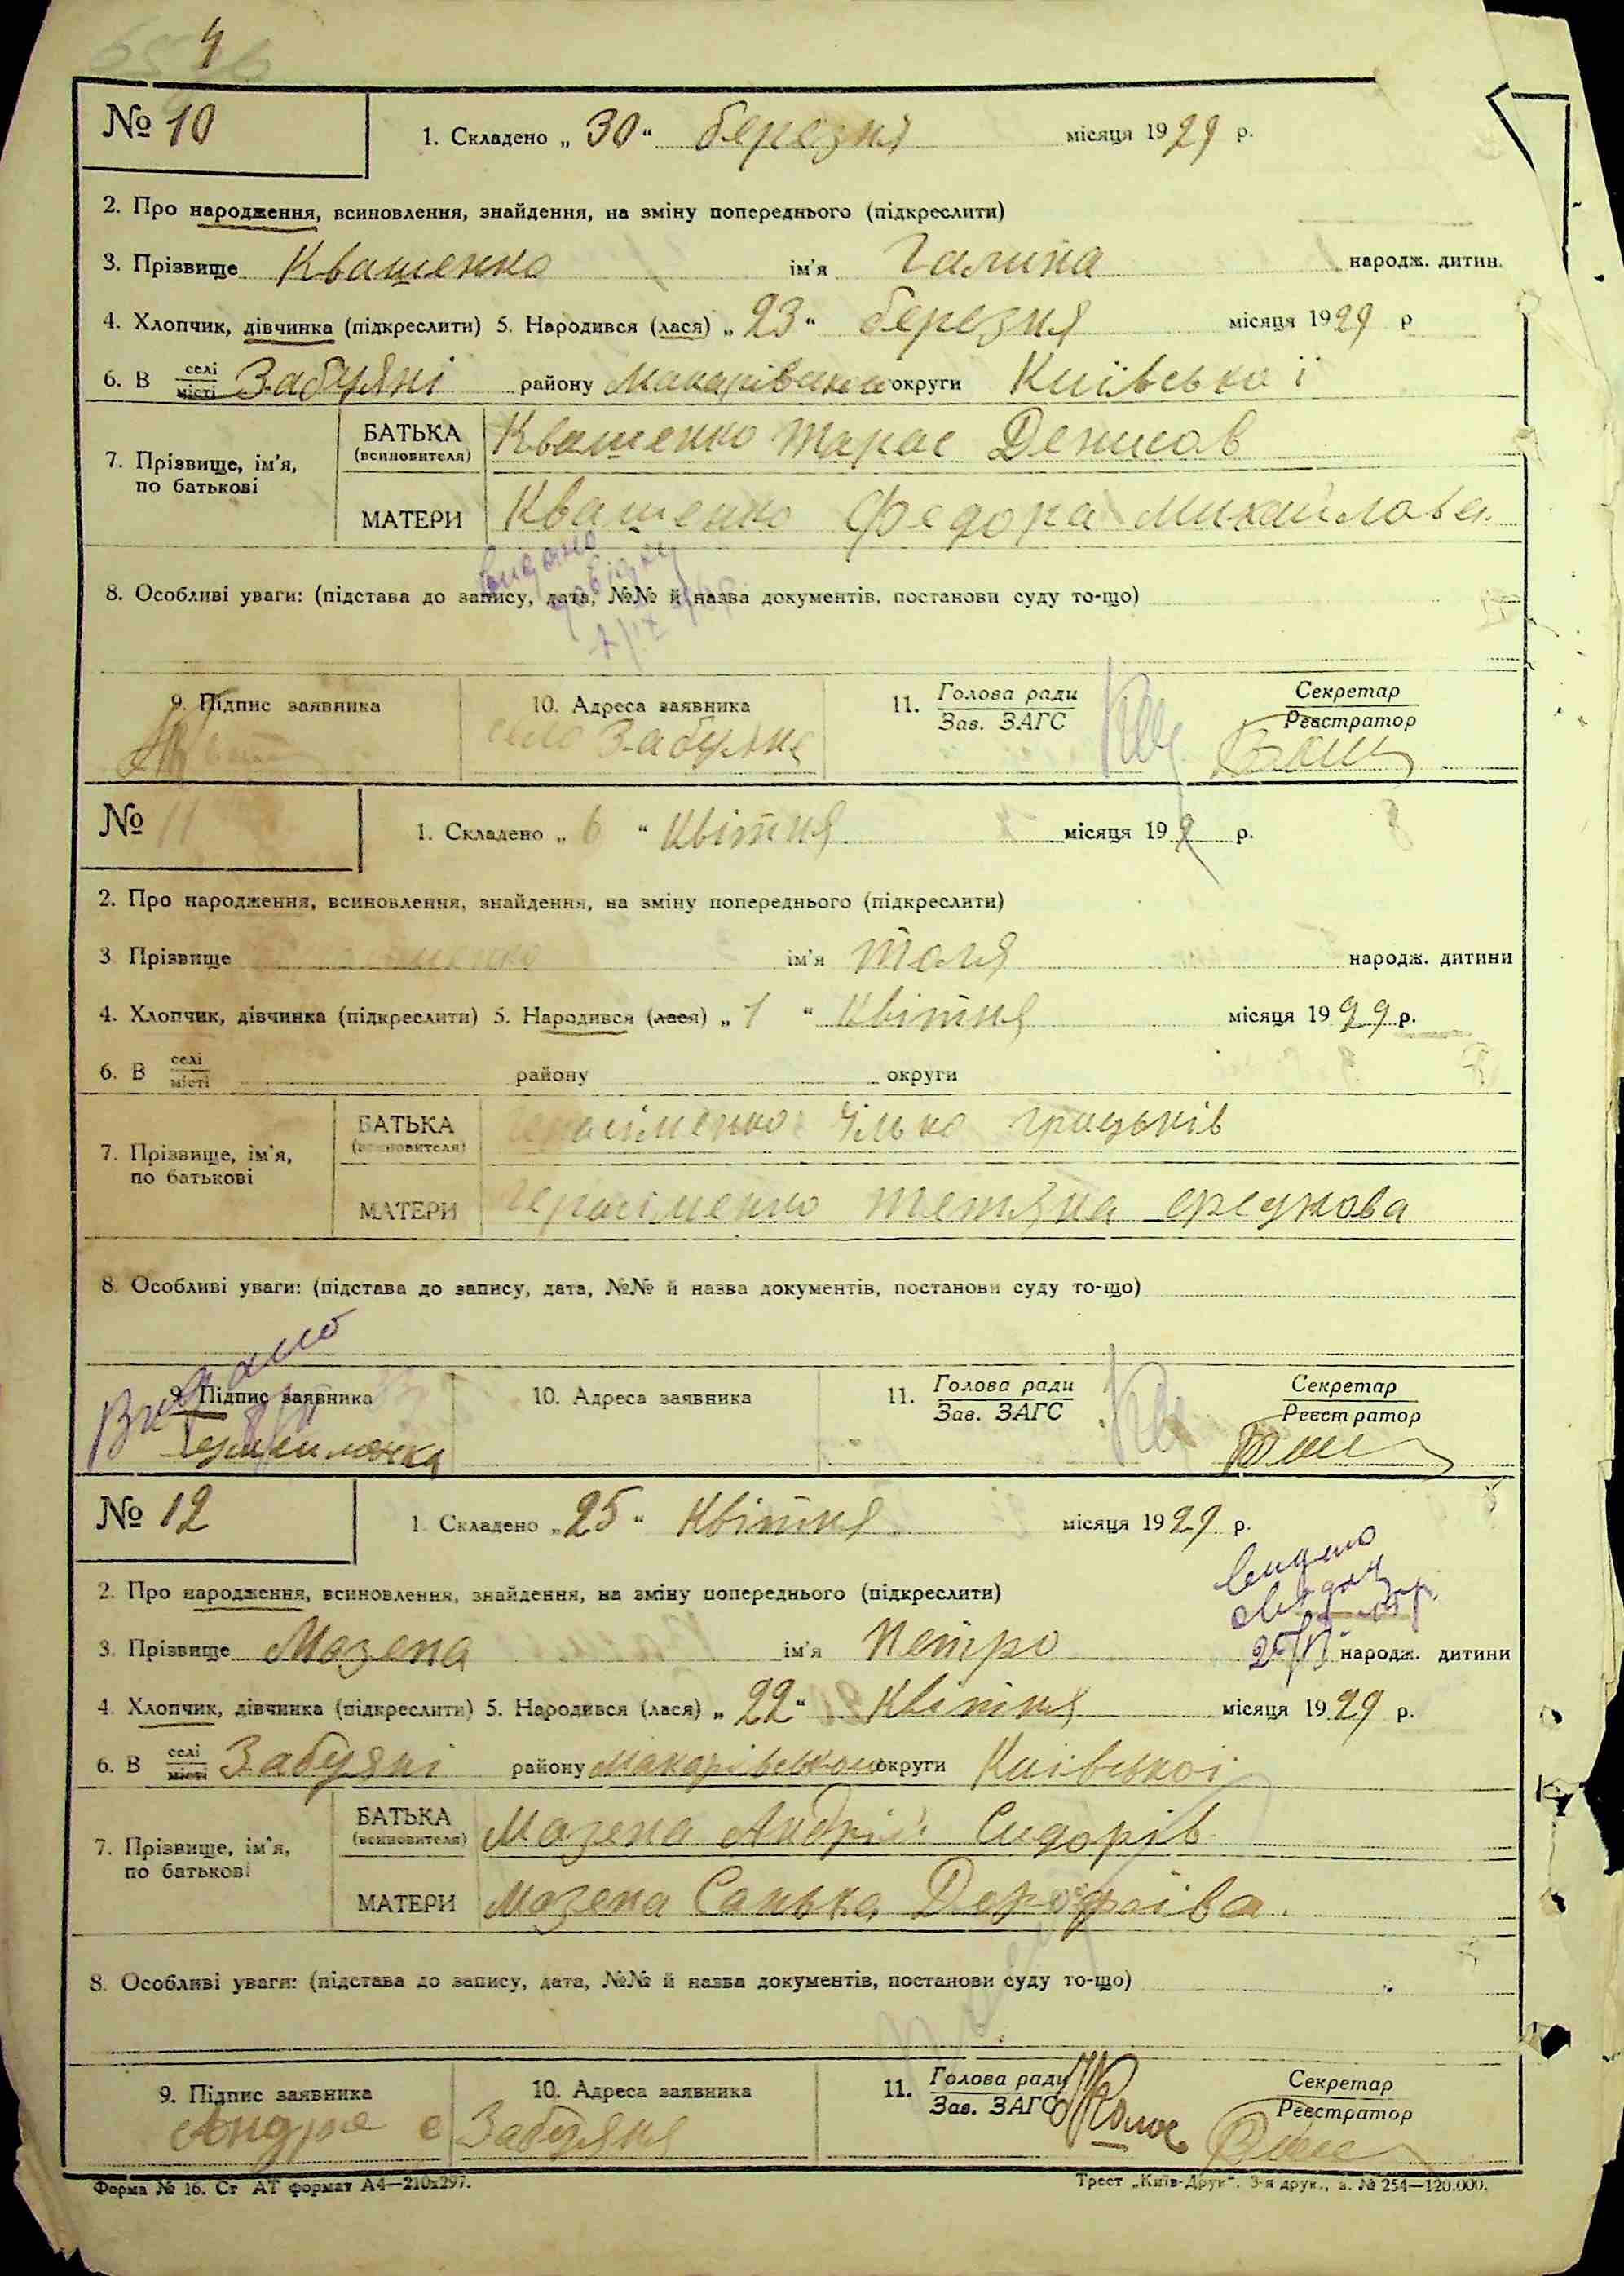 4
№ 10
1. Складено „ 30 “ березня місяця 1929 р.
2. Про народження, всиновлення, знайдення, на зміну попереднього (підкреслити)
3. Прізвище Квашенко ім'я Галина народж. дитин.
4. Хлопчик, дівчинка (підкреслити) 5. Народився (лася) „ 23 “ березня місяця 1929 р
6. В селі місті Забуяні району округи Київської
7. Прізвище, ім'я, по батькові
БАТЬКА (всиновителя) Квашенко Тарас Денисов
МАТЕРИ Квашенко Федора Михайлова
видано
довідку
8. Особливі уваги: (підстава до запису, дата, №№ й назва документів, постанови суду то-що)
9. Підпис заявника
10. Адреса заявника
село Забуяне
11. Голова ради
Зав. ЗАГС
Секретар
Реєстратор
№ 11
1. Складено „ 6 “ Квітня місяця 199 р.
2. Про народження, всиновлення, знайдення, на зміну попереднього (підкреслити)
3 Прізвище ім'я Толя народж. дитини
4. Хлопчик, дівчинка (підкреслити) 5. Народився (лася) „ 1 “ Квітня місяця 1929 р.
6. В селі місті району округи
7. Прізвище, ім'я, по батькові
БАТЬКА (всиновителя) Герасіменко Ілько Грицьків
МАТЕРИ Герасіменко Тетяна
8. Особливі уваги: (підстава до запису, дата, №№ й назва документів, постанови суду то-що)
Видано
9. Підпис заявника
10. Адреса заявника
11. Голова ради
Зав. ЗАГС
Секретар
Реєстратор
№ 12
1. Складено „ 25 “ Квітня місяця 1929 р.
видано
2. Про народження, всиновлення, знайдення, на зміну попереднього (підкреслити)
3. Прізвище Мазепа ім'я Петро народж. дитини
4. Хлопчик, дівчинка (підкреслити) 5. Народився (лася) „ 22 “ Квітня місяця 1929 р.
6. В селі місті Забуяні району Макарівського округи Київської
7. Прізвище, ім'я, по батькові
БАТЬКА (всиновителя) Мазепа Андрій Сидорів
МАТЕРИ Мазепа Санька
8. Особливі уваги: (підстава до запису, дата, №№ й назва документів, постанови суду то-що)
9. Підпис заявника
10. Адреса заявника
Забуяня
11. Голова ради
Зав. ЗАГС
Секретар
Реєстратор
Форма № 16. Ст АТ формат А4—210х297.
Трест „Київ-Друк“. 3-я друк., з. № 254—120.000.